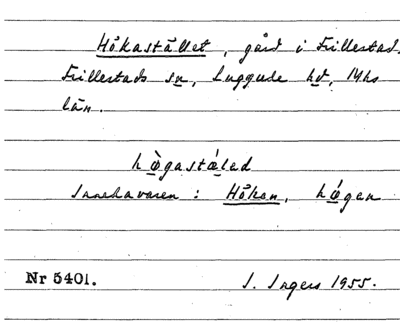 Håkastället, gård i Frillestad,
Frillestads sn, Luggude hd, Mhs
län.
hògastáled
Innehavaren: Håkan, hógan
Nr 5401.
I. Ingers 1955.